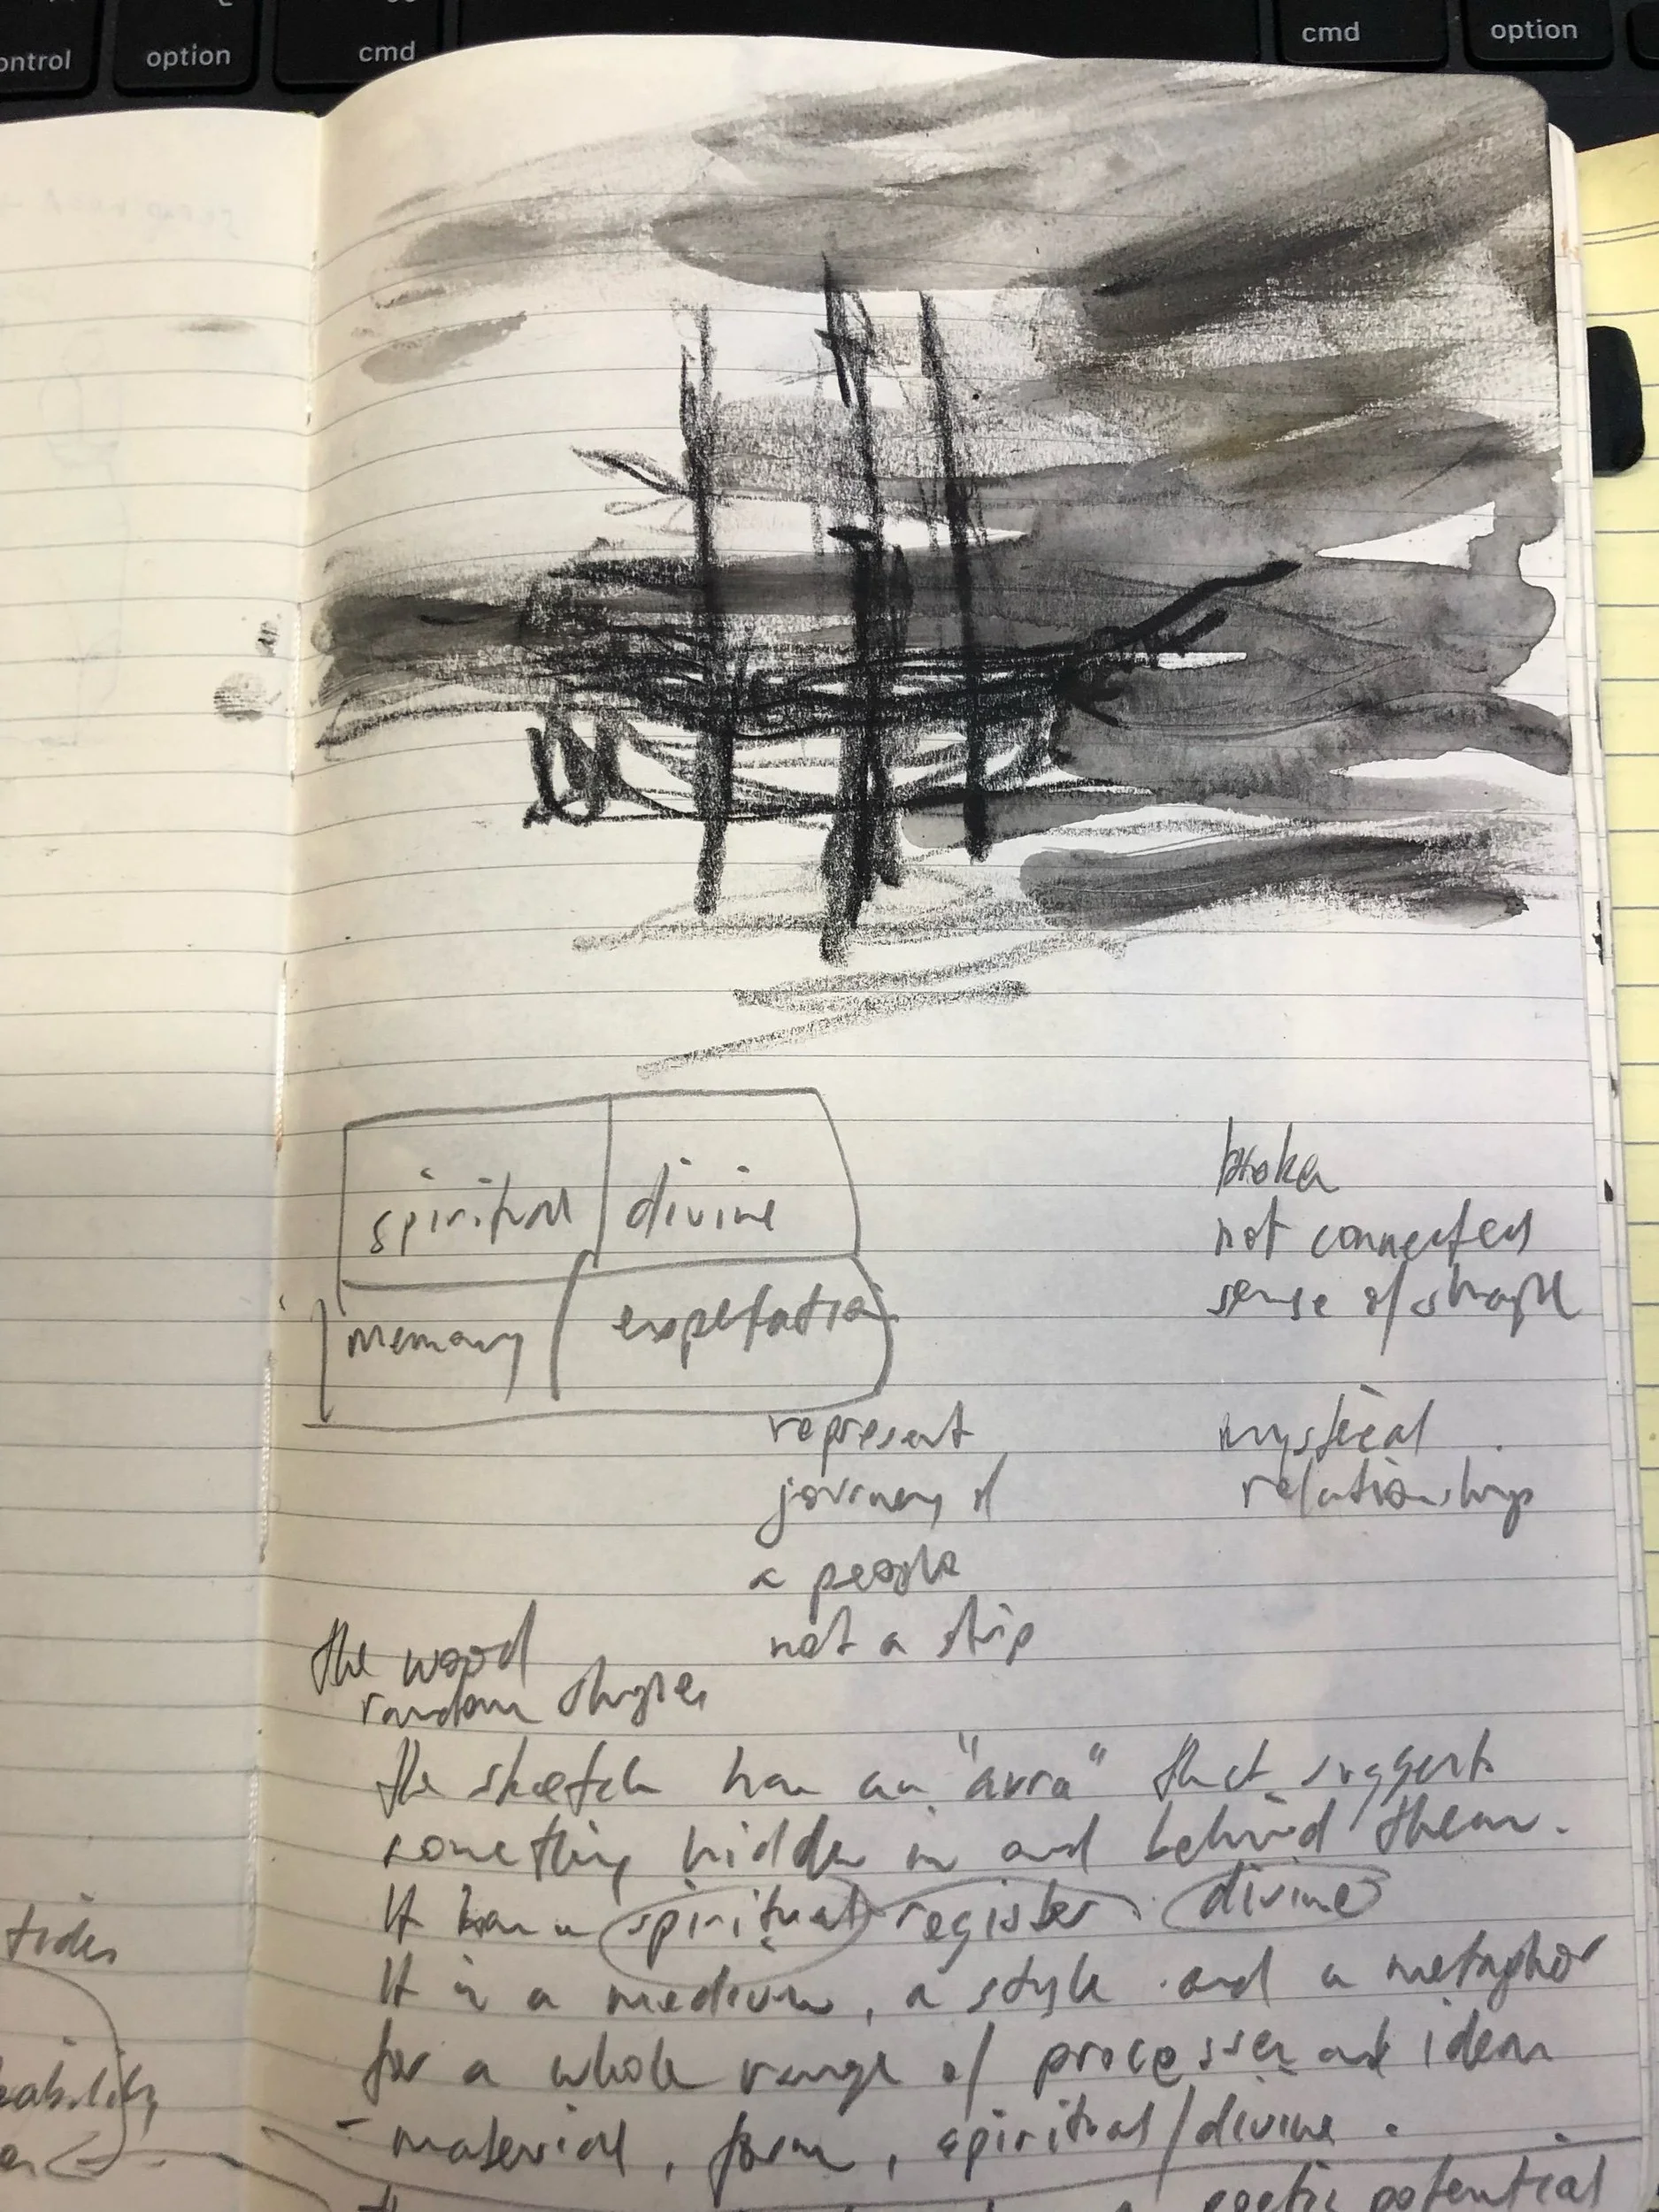 control
option
cmd
cmd
option
spiritual
divine
memory
expetation
broken
not connected
sense of shape
represent
journey of
a people
not a ship
mystical
relationships
the wood
random shapes
the sketch has an "aura" that suggests
something hidden in and behind them.
It has a spiritual register. divine
It is a medium, a style and a metaphor
for a whole range of processes and ideas
- material, form, spiritual/divine.
poetic potential
tides